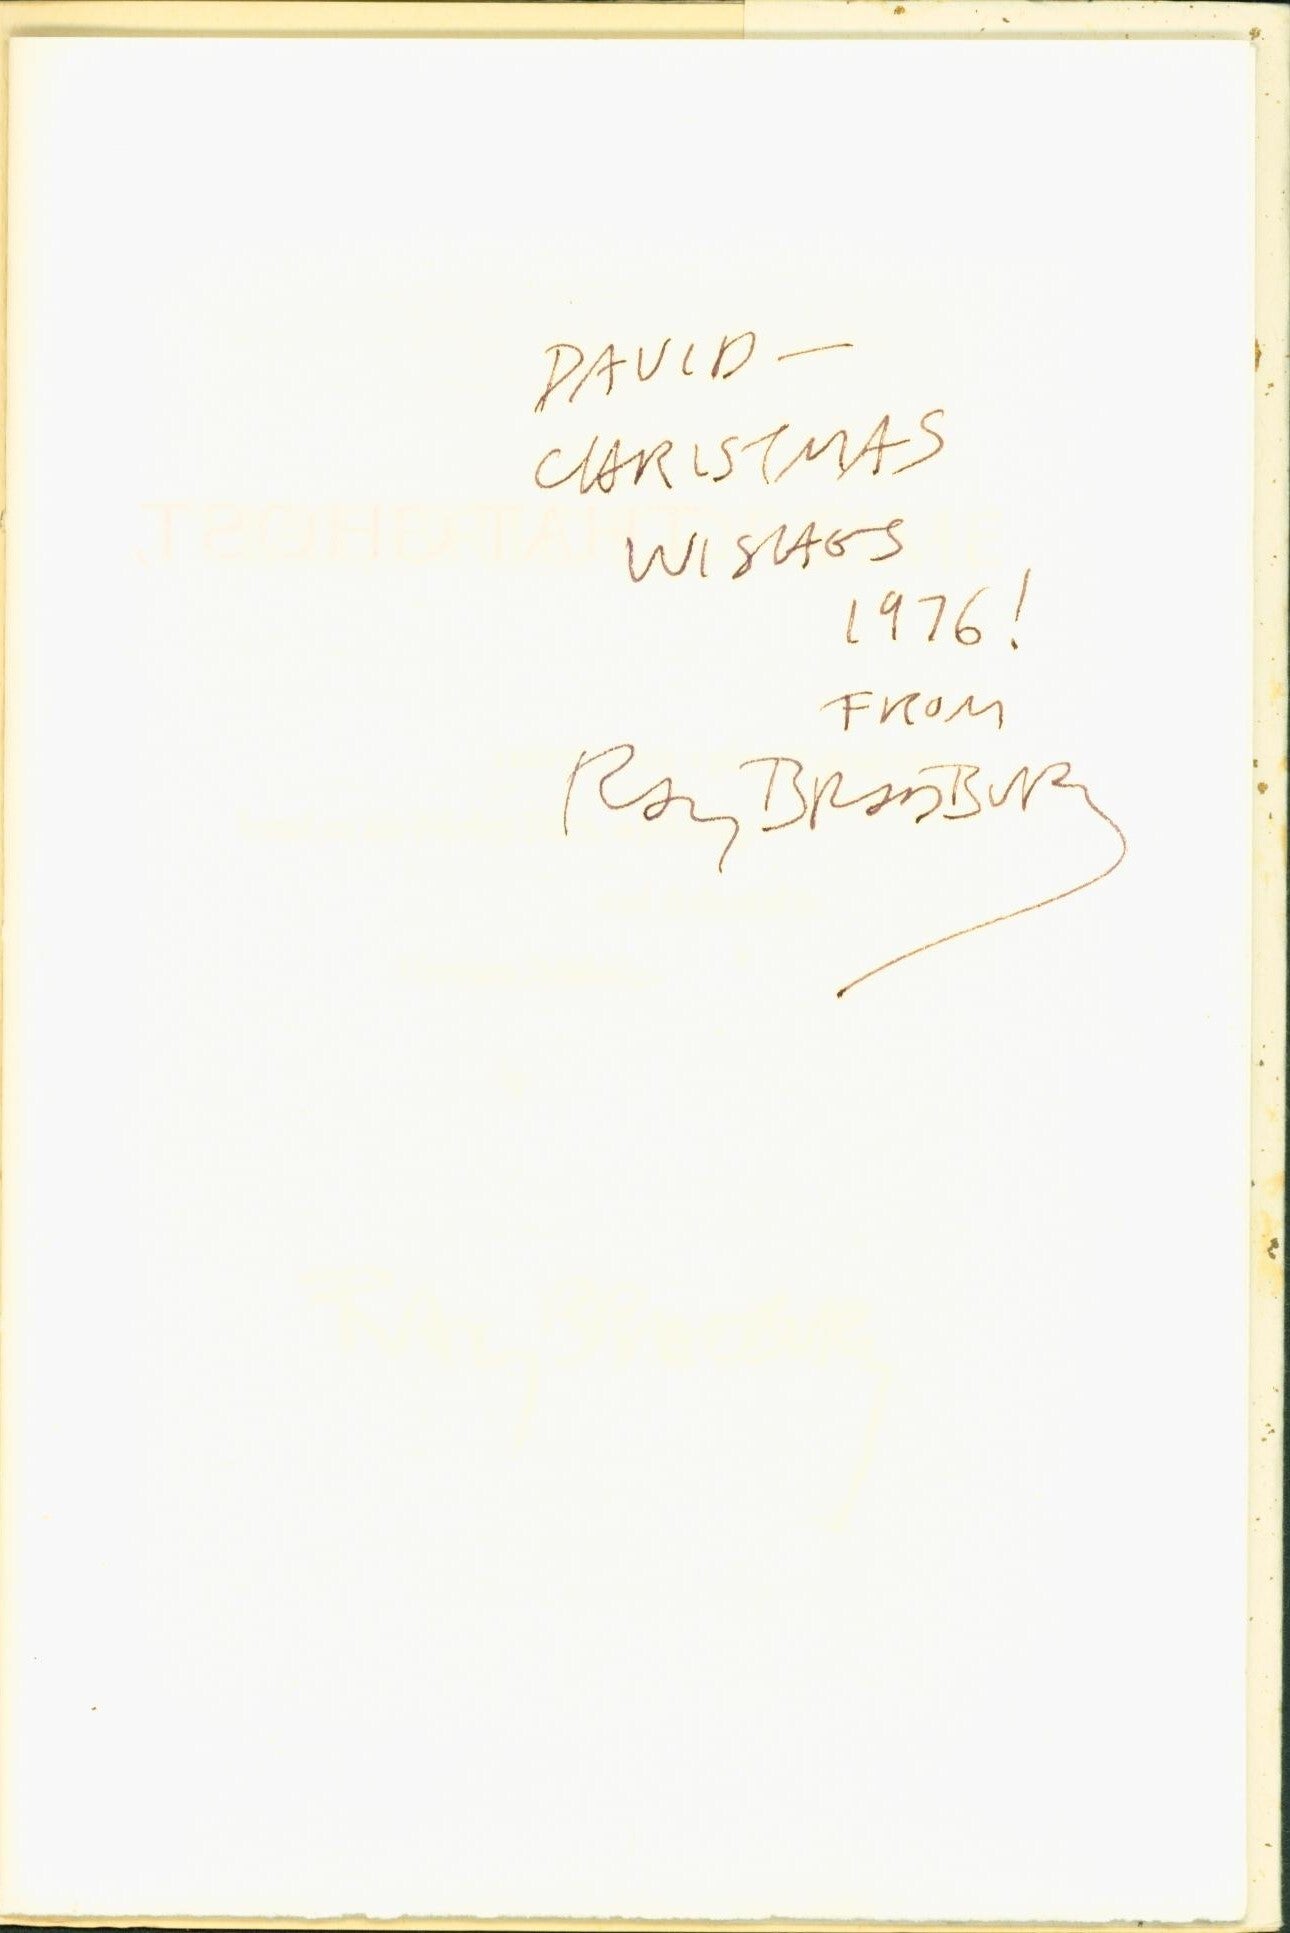 DAVID —
CHRISTMAS
WISHES
1976!
FROM
RAY BRADBURY
THAT GHOST,